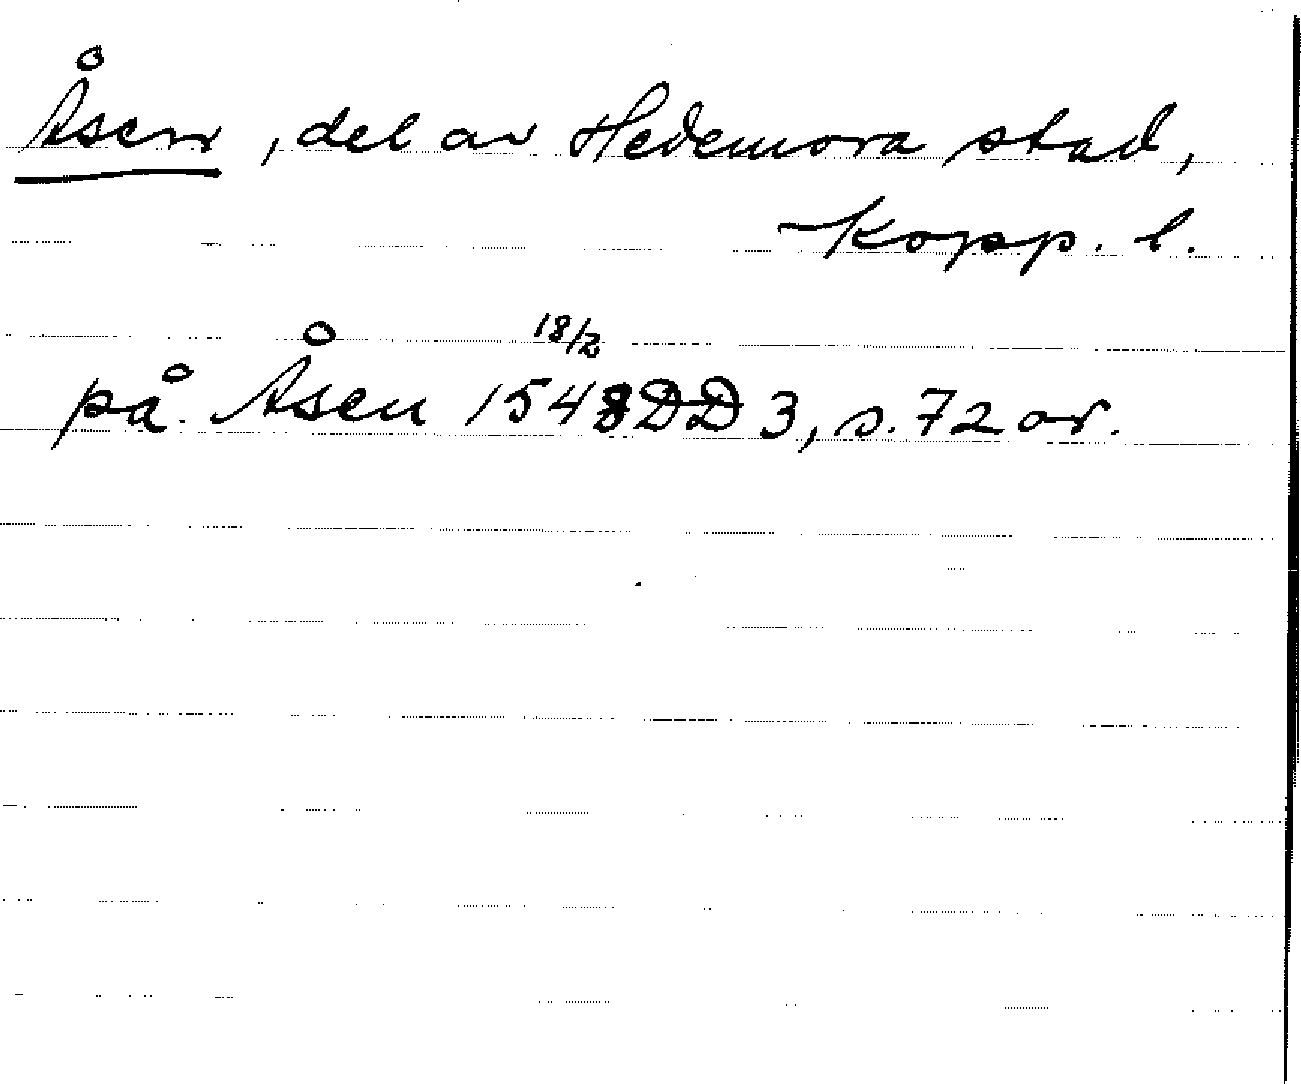 Åsen, del av Hedemora stad,
Kopp. l.
18/2
på Åsen 1548 DD 3, s. 72 or.